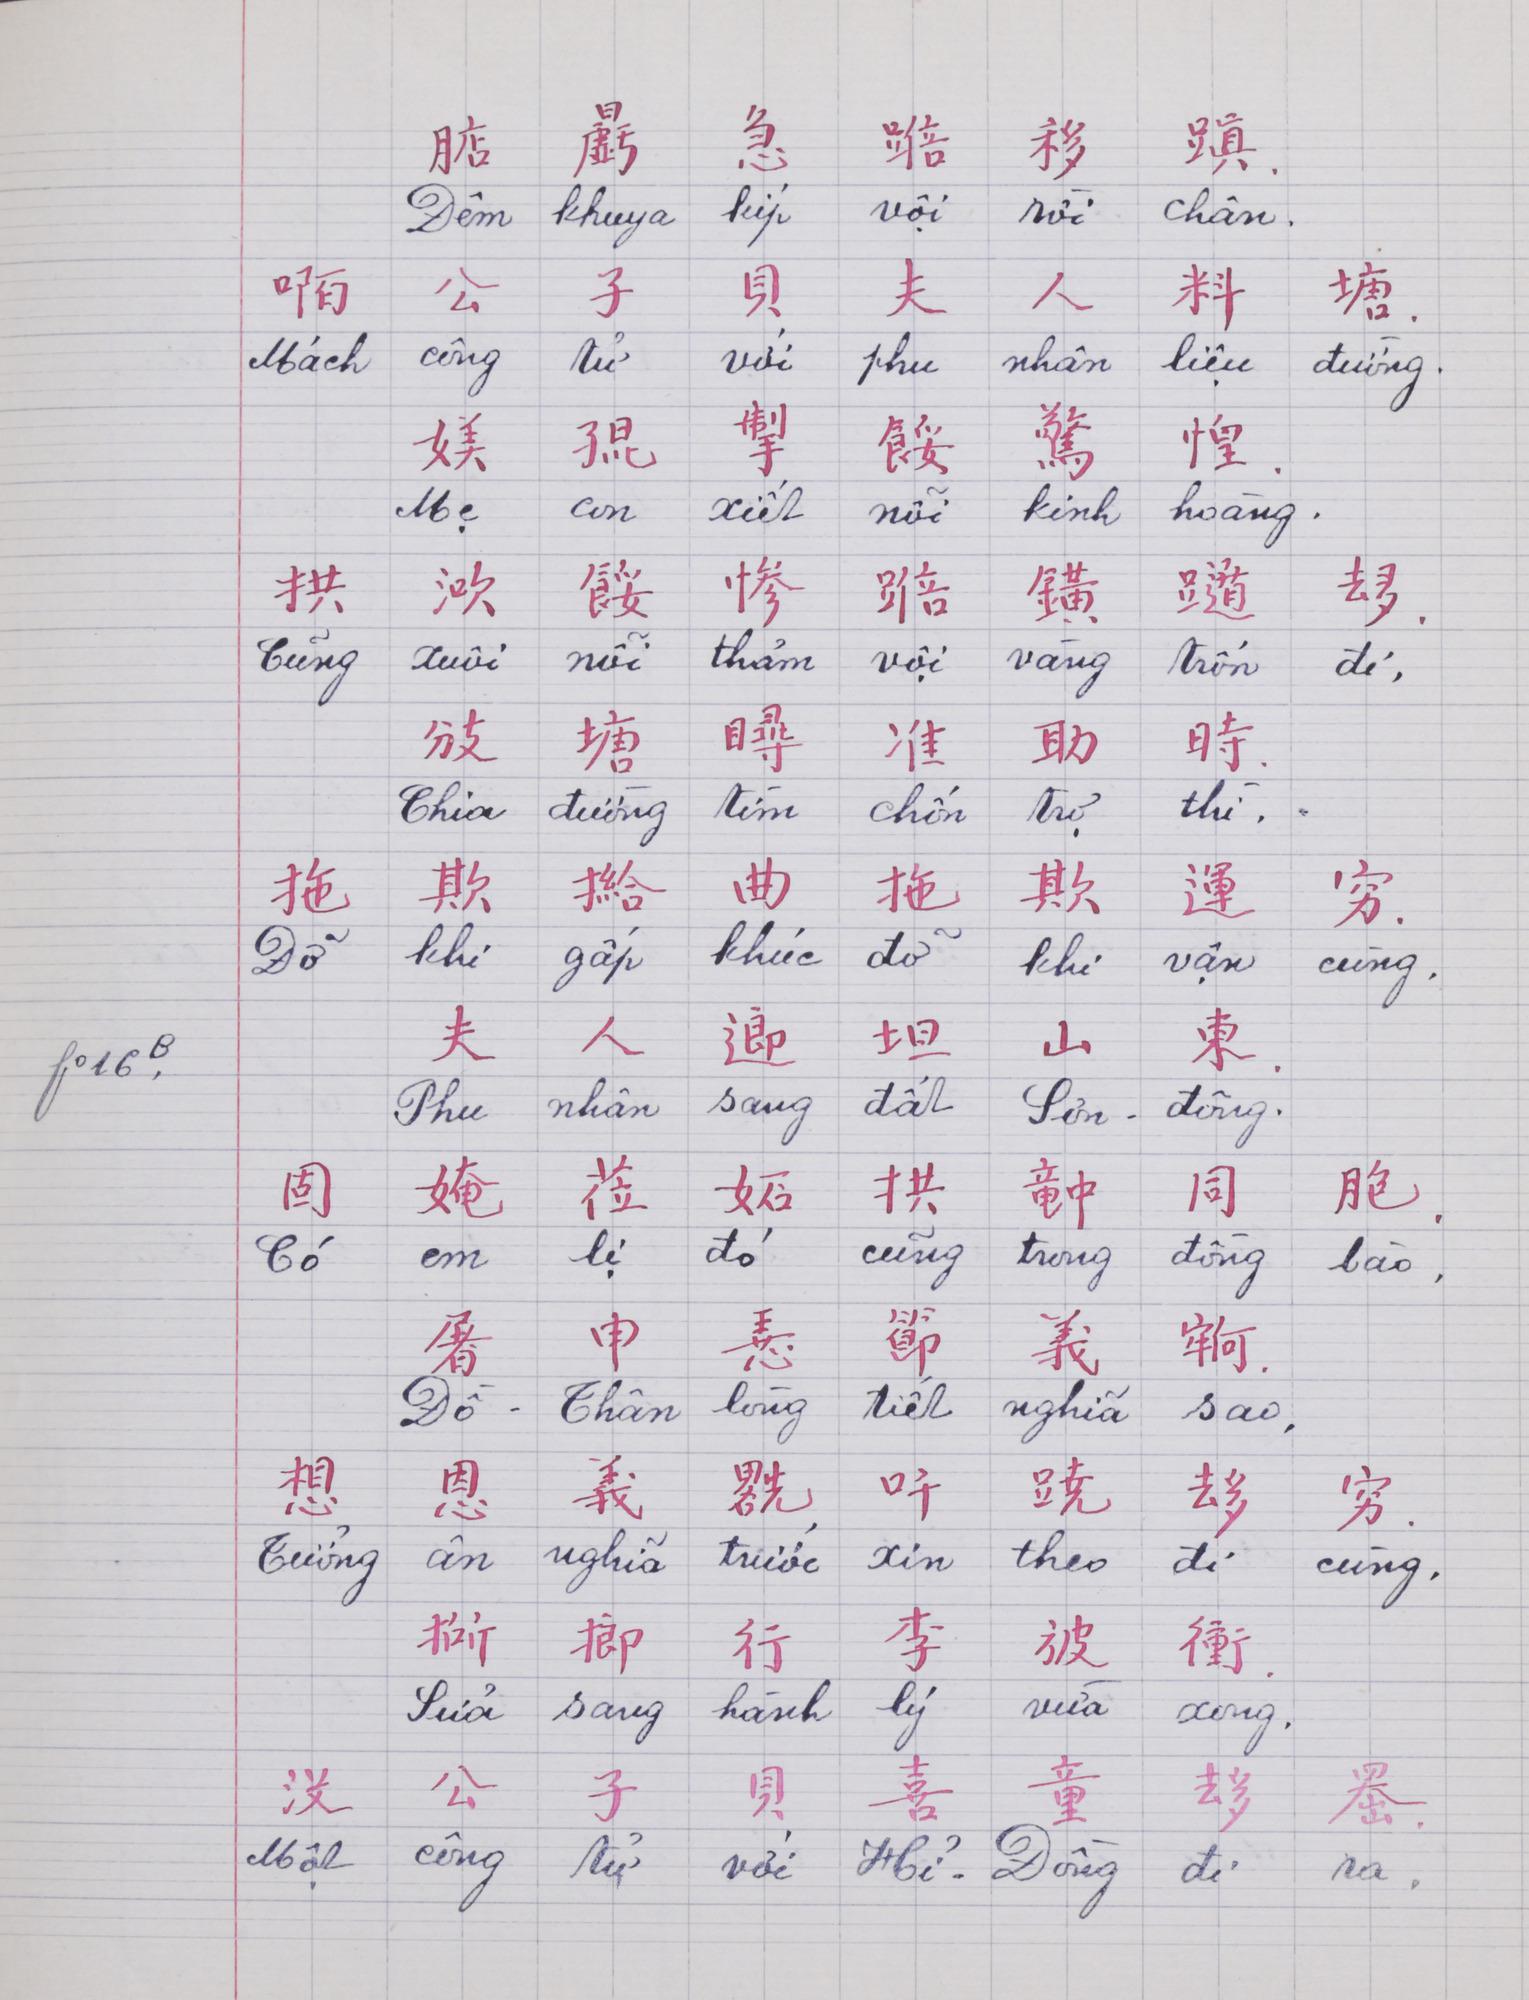 𣈘 𣌉 急 踣 移 蹎.
Đêm khuya kíp vội rời chân.
𠴕 公 子 貝 夫 人 料 塘.
Mách công tử với phu nhân liệu đường.
媄 𡥵 掣 餒 驚 惶.
Mẹ con xiết nỗi kinh hoàng.
拱 㳄 餒 惨 踣 鐄 遁 𠫾.
Cũng xuôi nỗi thảm vội vàng trốn đi,
𢺹 塘 尋 准 助 時.
Chia đường tìm chốn trợ thì.
拖 欺 𢶒 曲 拖 欺 運 穷.
Đỡ khi gấp khúc đỡ khi vận cùng.
夫 人 𨖅 坦 山 東.
fo 16 B.
Phu nhân sang đất Sơn-đông.
固 㛪 莅 妬 拱 𥪝 同 胞.
Có em lị đó cũng trong đồng bào,
屠 申 𢚸 節 義 𡫡.
Đồ-Thân lòng tiết nghĩa sao,
想 恩 義 𠓀 吀 蹺 𠫾 穷.
Tưởng ân nghĩa trước xin theo đi cùng.
𢯢 𢲲 行 李 𣃣 衝.
Sửa sang hành lý vừa xong.
没 公 子 貝 喜 童 𠫾 𦋦.
Một công tử với Hỉ-Đồng đi ra.